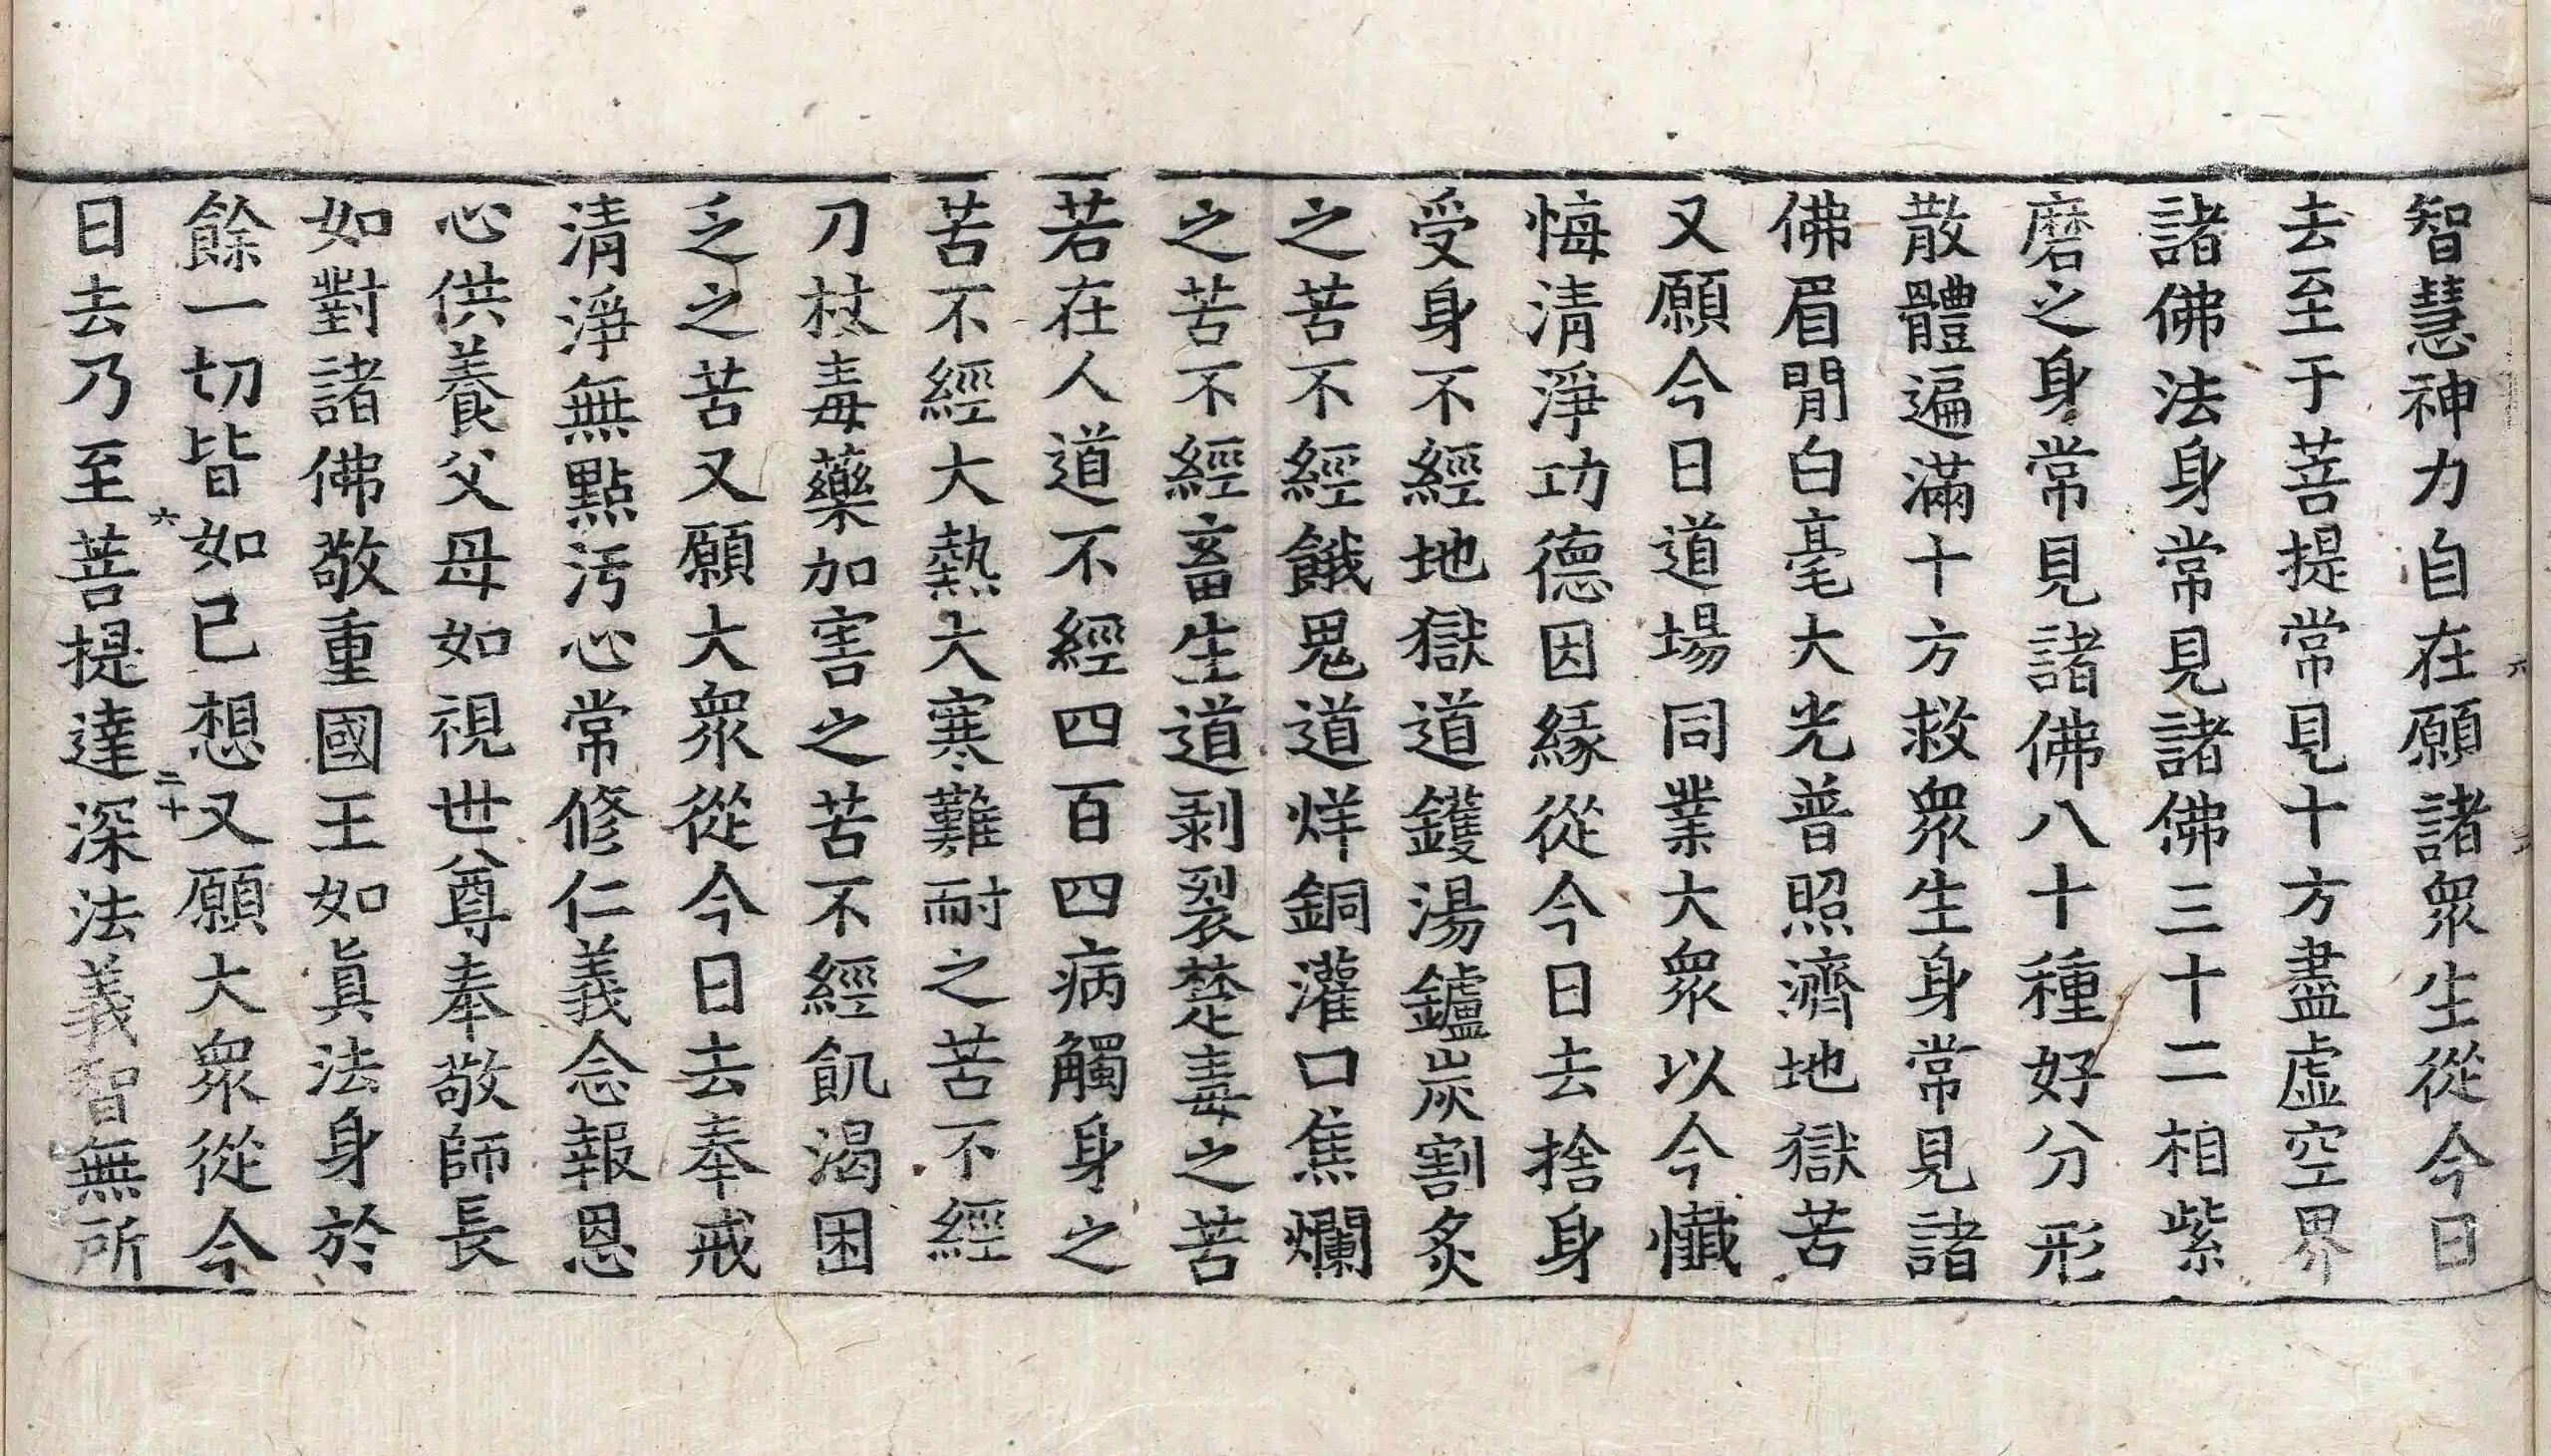 智慧神力自在願諸衆生從今日
去至于菩提常見十方盡虛空界
諸佛法身常見諸佛三十二相紫
磨之身常見諸佛八十種好分形
散體遍滿十方救衆生身常見諸
佛眉閒白毫大光普照濟地獄苦
又願今日道場同業大衆以今懺
悔淸淨功德因緣從今日去捨身
受身不經地獄道鑊湯鑪炭割炙
之苦不經餓鬼道烊銅灌口焦爛
之苦不經畜生道剥裂楚毒之苦
若在人道不經四百四病觸身之
苦不經大熱大寒難耐之苦不經
刀杖毒藥加害之苦不經飢渴困
乏之苦又願大衆從今日去奉戒
淸淨無點汚心常修仁義念報恩
心供養父母如視世尊奉敬師長
如對諸佛敬重國王如眞法身於
餘一切皆如已想又願大衆從今
六 二十
日去乃至菩提達深法義智無所